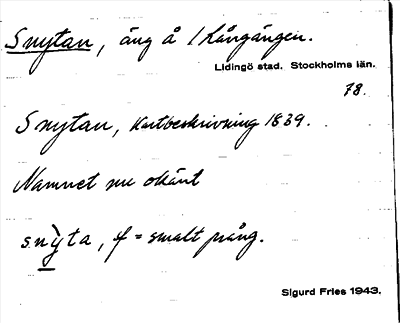 Snytan, äng å Långängen.
Lidingö stad. Stockholms län.
78.
Snytan, Kartbeskrivning 1839.
Namnet nu okänt
snỳta, f = smalt prång.
Sigurd Fries 1943.